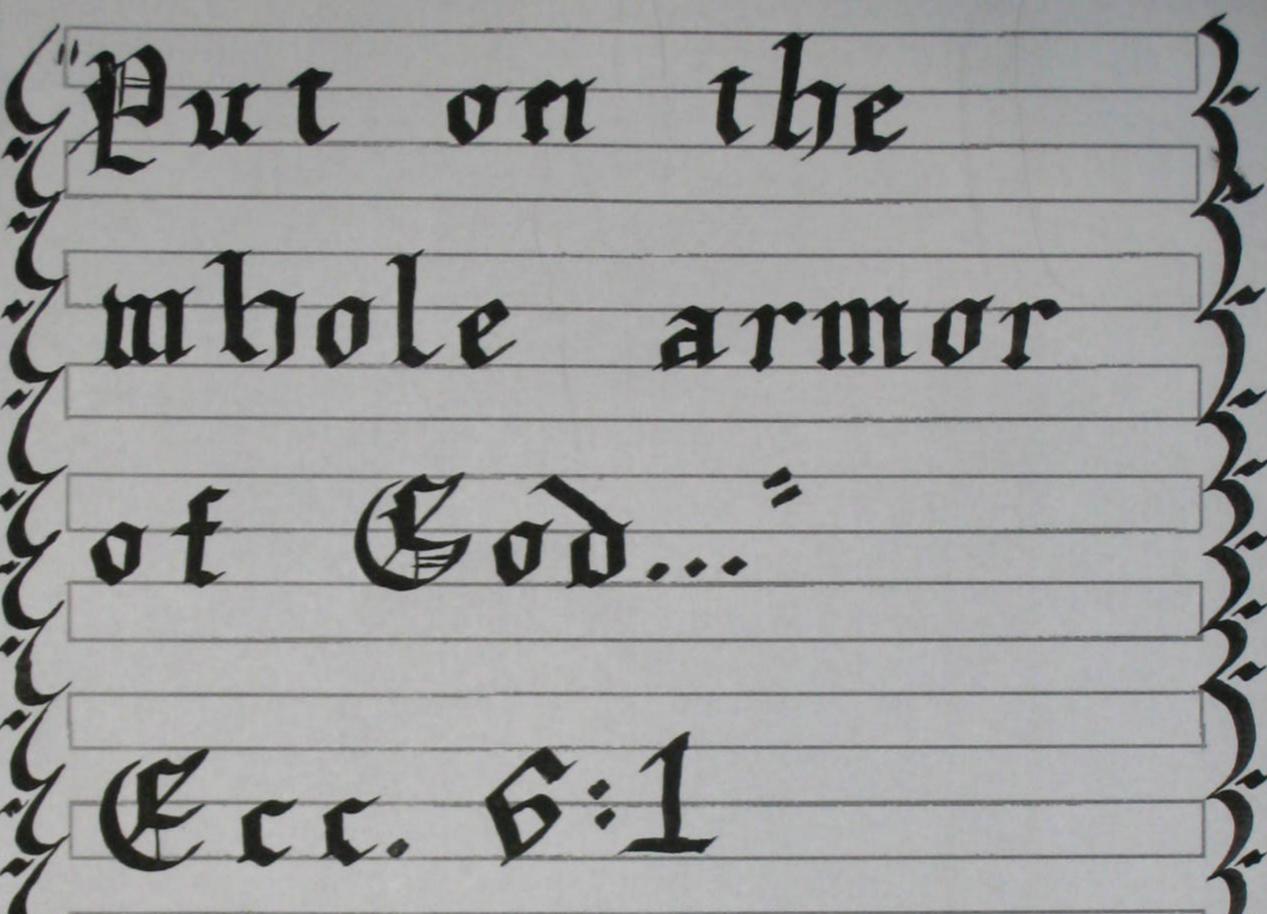 "Put on the
whole armor
of God..."
Ecc. 6:1